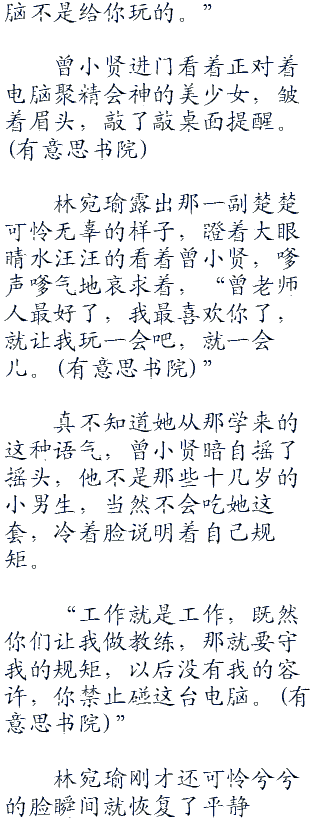 脑不是给你玩的。”
曾小贤进门看着正对着
电脑聚精会神的美少女，皱
着眉头，敲了敲桌面提醒。
(有意思书院)
林宛瑜露出那一副楚楚
可怜无辜的样子，瞪着大眼
睛水汪汪的看着曾小贤，嗲
声嗲气地哀求着，“曾老师
人最好了，我最喜欢你了，
就让我玩一会吧，就一会
儿。(有意思书院)”
真不知道她从那学来的
这种语气，曾小贤暗自摇了
摇头，他不是那些十几岁的
小男生，当然不会吃她这
套，冷着脸说明着自己规
矩。
“工作就是工作，既然
你们让我做教练，那就要守
我的规矩，以后没有我的容
许，你禁止碰这台电脑。(有
意思书院)”
林宛瑜刚才还可怜兮兮
的脸瞬间就恢复了平静